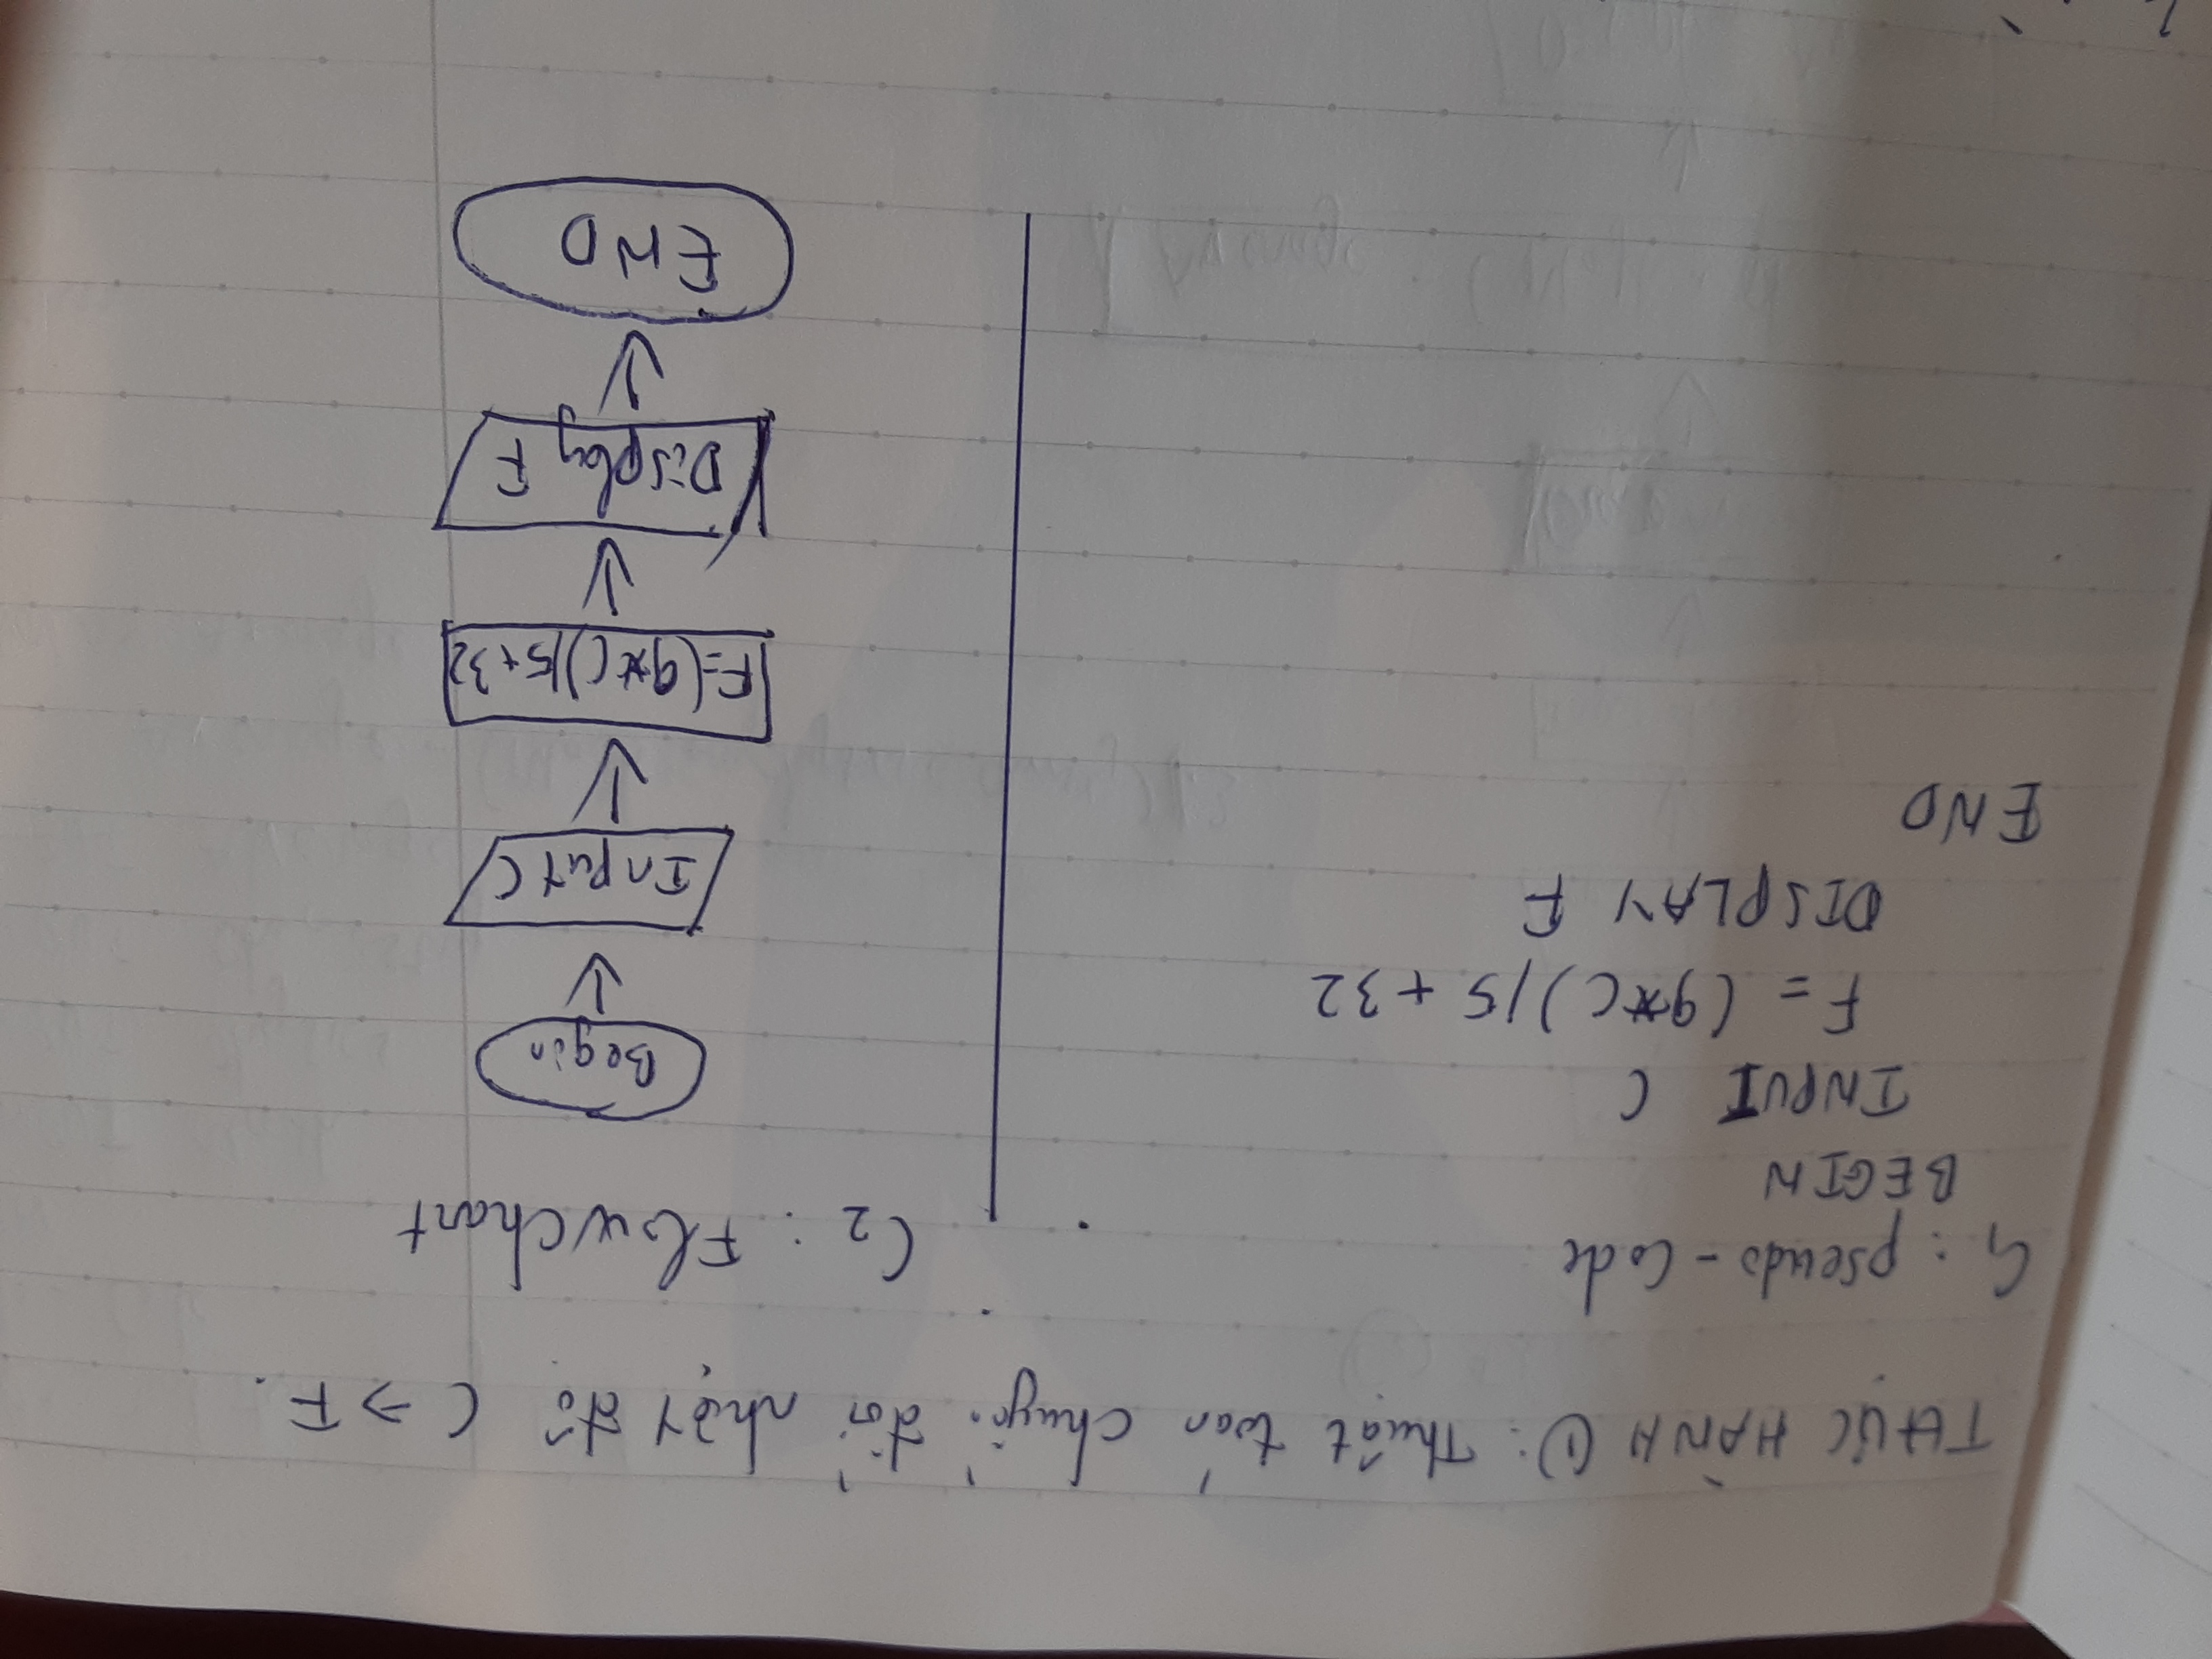 THỰC HÀNH ①: Thuật toán chuyển đổi nhiệt độ C → F.
C1: pseudo-Code
BEGIN
INPUT C
F = (9*C)/5 + 32
DISPLAY F
END
C2: Flowchart
Begin
Input C
F=(9*C)/5+32
Display F
END